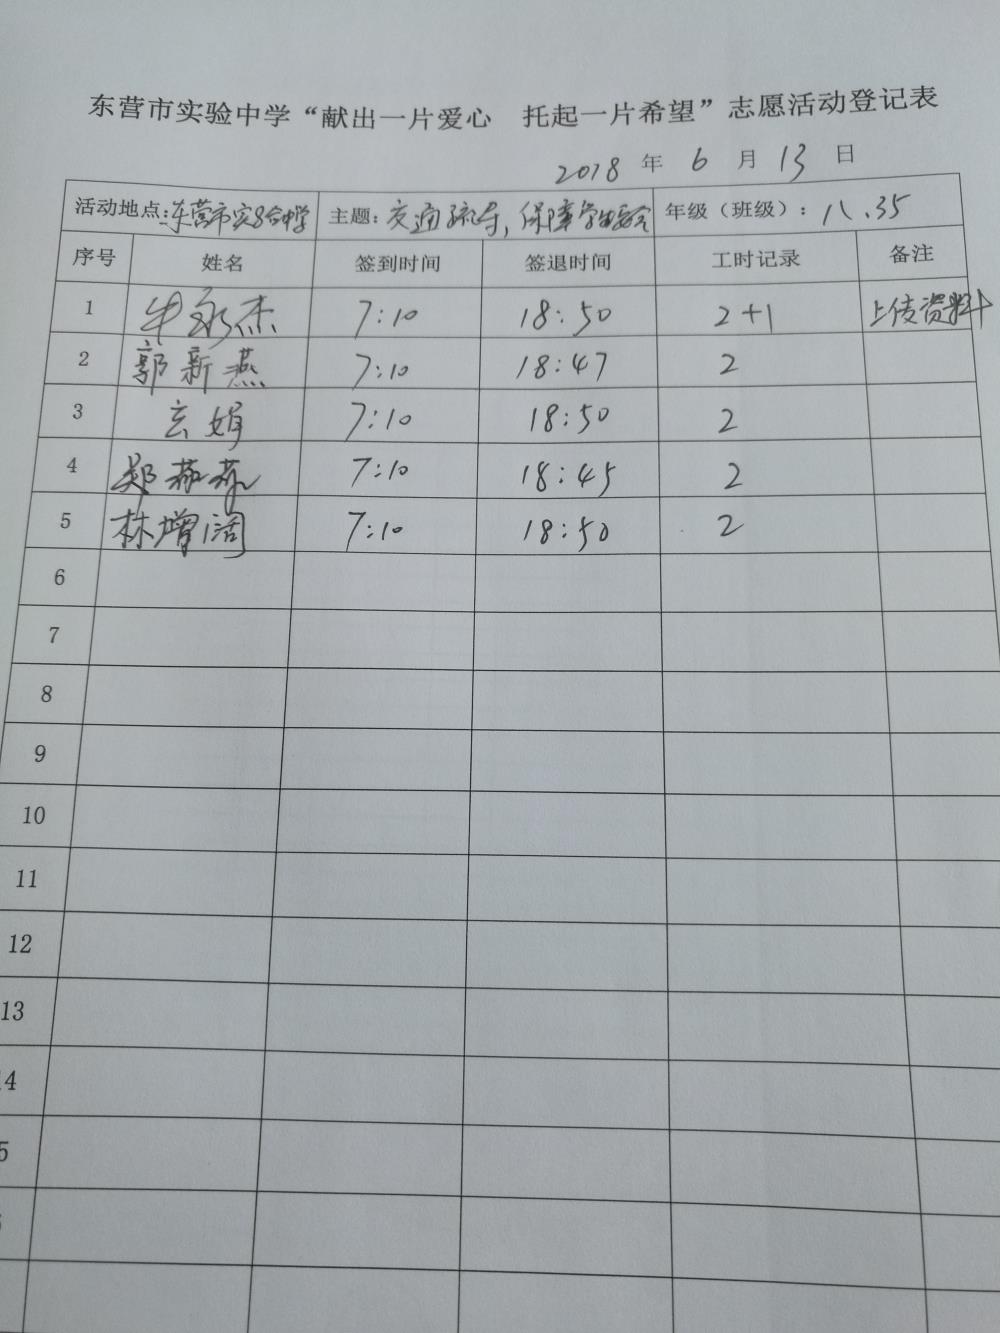 东营市实验中学“献出一片爱心 托起一片希望”志愿活动登记表
2018 年 6 月 13 日
活动地点:东营市实验中学 主题:交通疏导,保障学生安全 年级(班级):八.35
序号 姓名 签到时间 签退时间 工时记录 备注
1 牛永杰 7:10 18:50 2+1 上传资料
2 郭新燕 7:10 18:47 2
3 玄娟 7:10 18:50 2
4 郑 7:10 18:45 2
5 林增阔 7:10 18:50 2
6
7
8
9
10
11
12
13
4
5